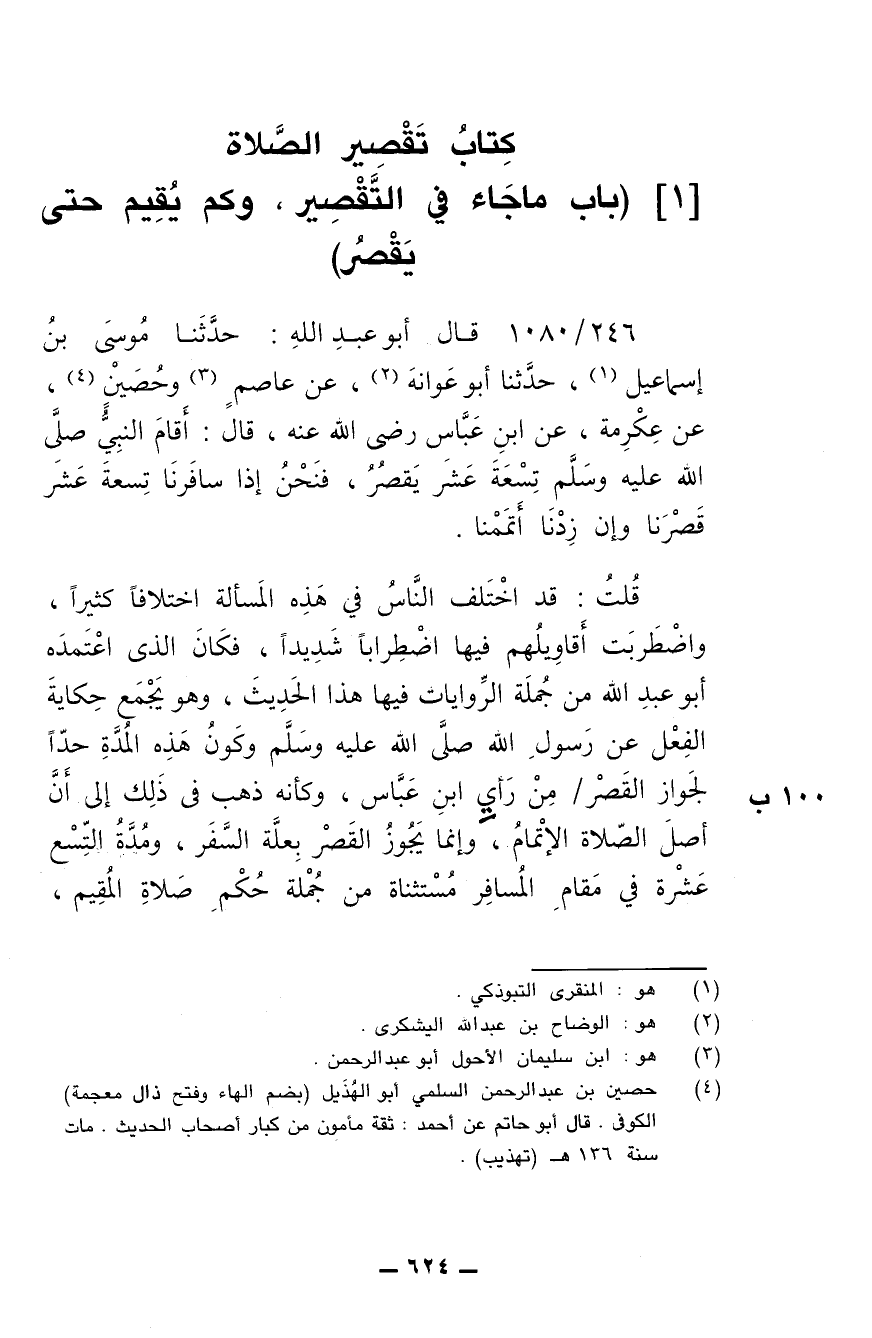 كِتابُ تَقْصِيرِ الصَّلاة
[١] (باب ماجَاء في التَّقْصِير ، وكم يُقِيم حتى
يَقْصرُ)
١٠٨٠/٢٤٦ قال أبو عبدِ اللهِ : حدَّثَنا مُوسىَ بنُ
إسماعيل (١) ، حدَّثنا أبو عَوانةَ (٢) ، عن عاصمٍ (٣) وحُصَيْنٍ (٤) ،
عن عِكْرِمة ، عن ابنِ عَبَّاس رضى الله عنه ، قال : أَقامَ النبيُّ صلىَّ
الله عليه وسَلَّم تِسْعَةَ عَشَر يَقصرُ ، فَنَحْنُ إذا سافَرنَا تِسعةَ عَشَر
قَصْرَنا وإن زِدْنَا أَتمَمْنا .
قُلتُ : قد اخْتَلف النَّاسُ في هَذِه المَسألة اختلافاً كثيراً ،
واضْطَربَت أَقاوِيلُهم فيها اضْطِراباً شَدِيداً ، فكَانَ الذى اعْتَمدَه
أبو عبدِ الله من جُملَة الرِّوايات فيها هذا الحَدِيثَ ، وهو يَجْمَع حِكايةَ
الفِعْل عن رَسولِ الله صلَّى الله عليه وسَلَّم وكَونُ هَذِه المُدَّةِ حدّاً
لجَواز القَصْر/ مِنْ رَأيِ ابنِ عَبَّاس ، وكأنه ذهب فى ذَلِك إلى أَنَّ
١٠٠ ب
أصلَ الصّلاة الإتْمامُ ، وإنما يَجُوزُ القَصْر بِعلَّة السَّفَر ، ومُدَّةُ التِّسْع
عَشْرة في مَقامِ المُسافِر مُسْتثناة من جُمْلة حُكْمِ صَلاةِ المُقِيم ،
(١) هو : المنقرى التبوذكي .
(٢) هو : الوضاح بن عبدالله اليشكرى .
(٣) هو : ابن سليمان الأحول أبو عبدالرحمن .
(٤) حصين بن عبدالرحمن السلمي أبو الهُذَيل (بضم الهاء وفتح ذال معجمة)
الكوفى . قال أبو حاتم عن أحمد : ثقة مأمون من كبار أصحاب الحديث . مات
سنة ١٣٦ هـ (تهذيب) .
ــ ٦٢٤ ــ